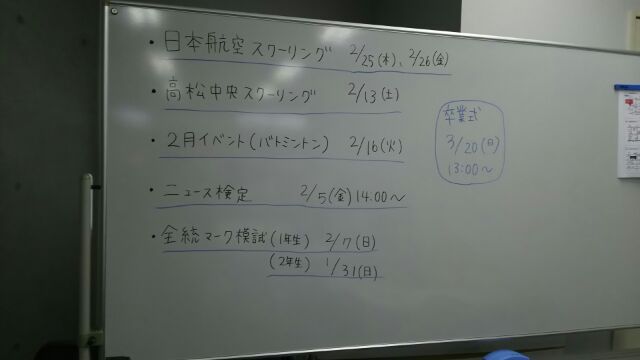 ・日本航空スクーリング 2/25(木)、2/26(金)
・高松中央スクーリング 2/13(土)
・2月イベント(バトミントン) 2/16(火)
・ニュース検定 2/5(金)14:00～
・全統マーク模試(1年生) 2/7(日)
(2年生) 1/31(日)
卒業式
3/20(日)
13:00～